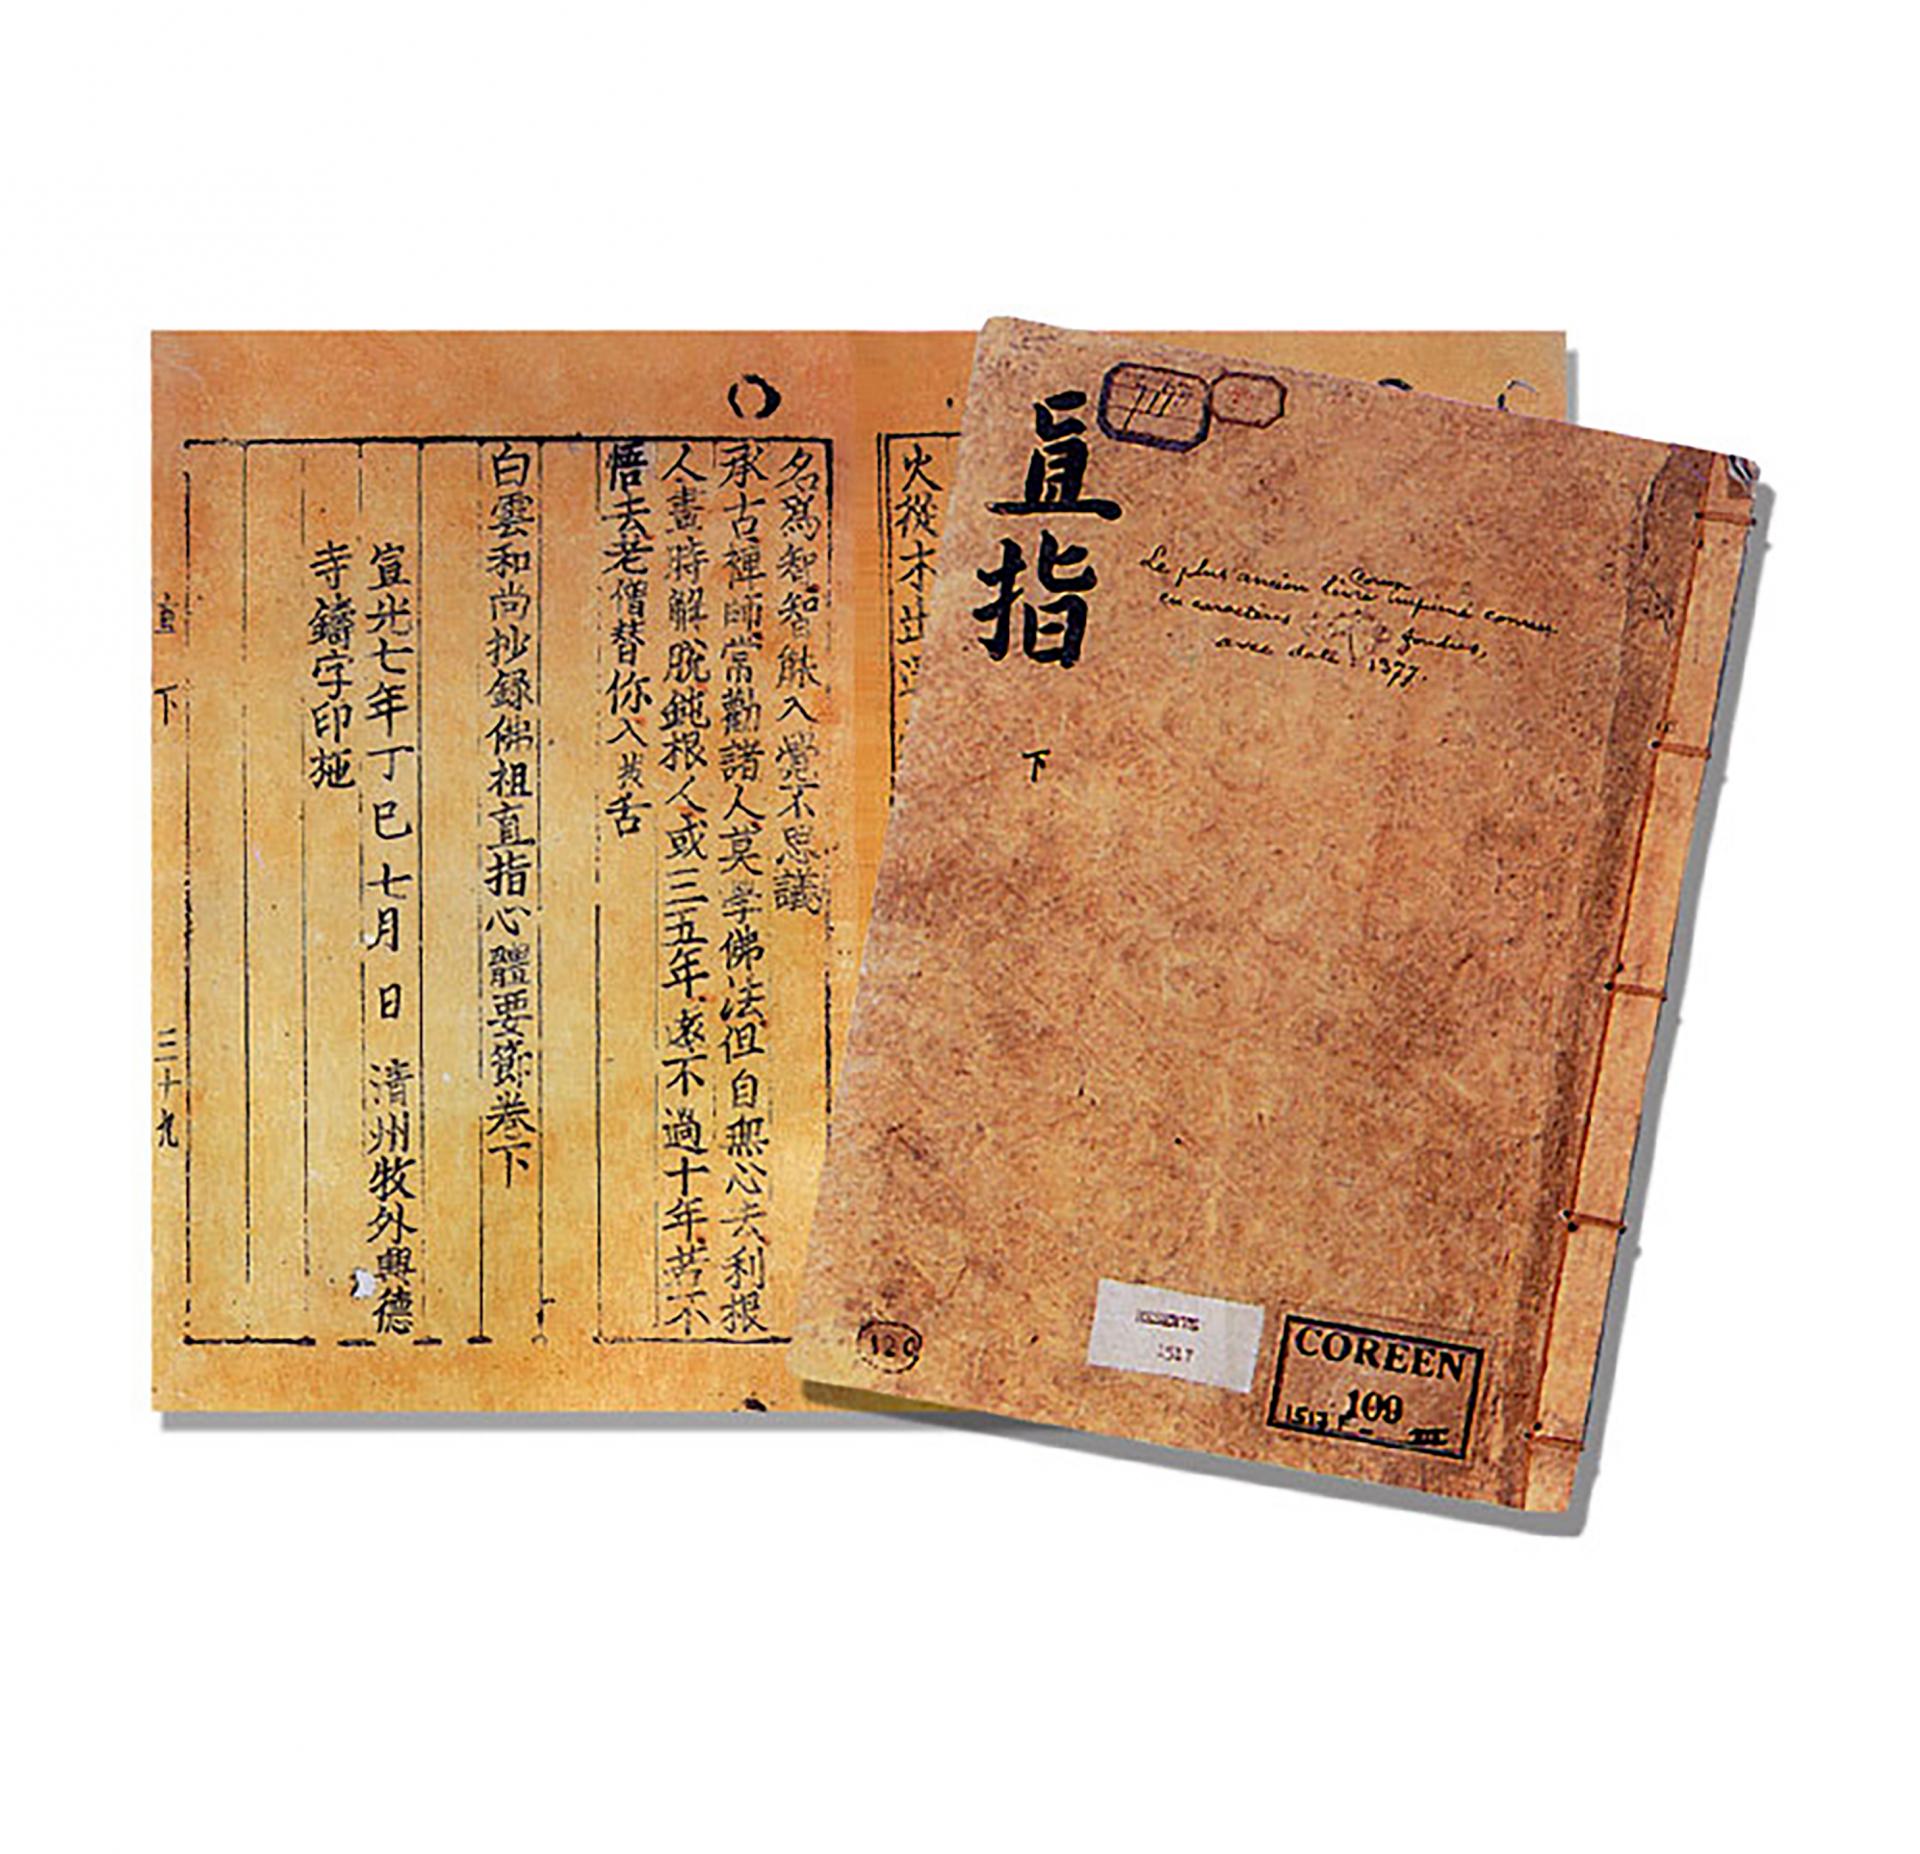 名爲智智能入覺不思議
承古禪師常勸諸人莫學佛法但自無心去利根
人晝時解脫鈍根人或三五年遠不過十年若不
悟去老僧替你入拔舌
白雲和尚抄錄佛祖直指心體要節卷下
宣光七年丁巳七月 日 清州牧外興德
寺鑄字印施
直 下 三十九
火從木出還
直指
下
Le plus ancien livre coréen imprimé connu
en caractères fondus,
avec date : 1377.
COREEN
109